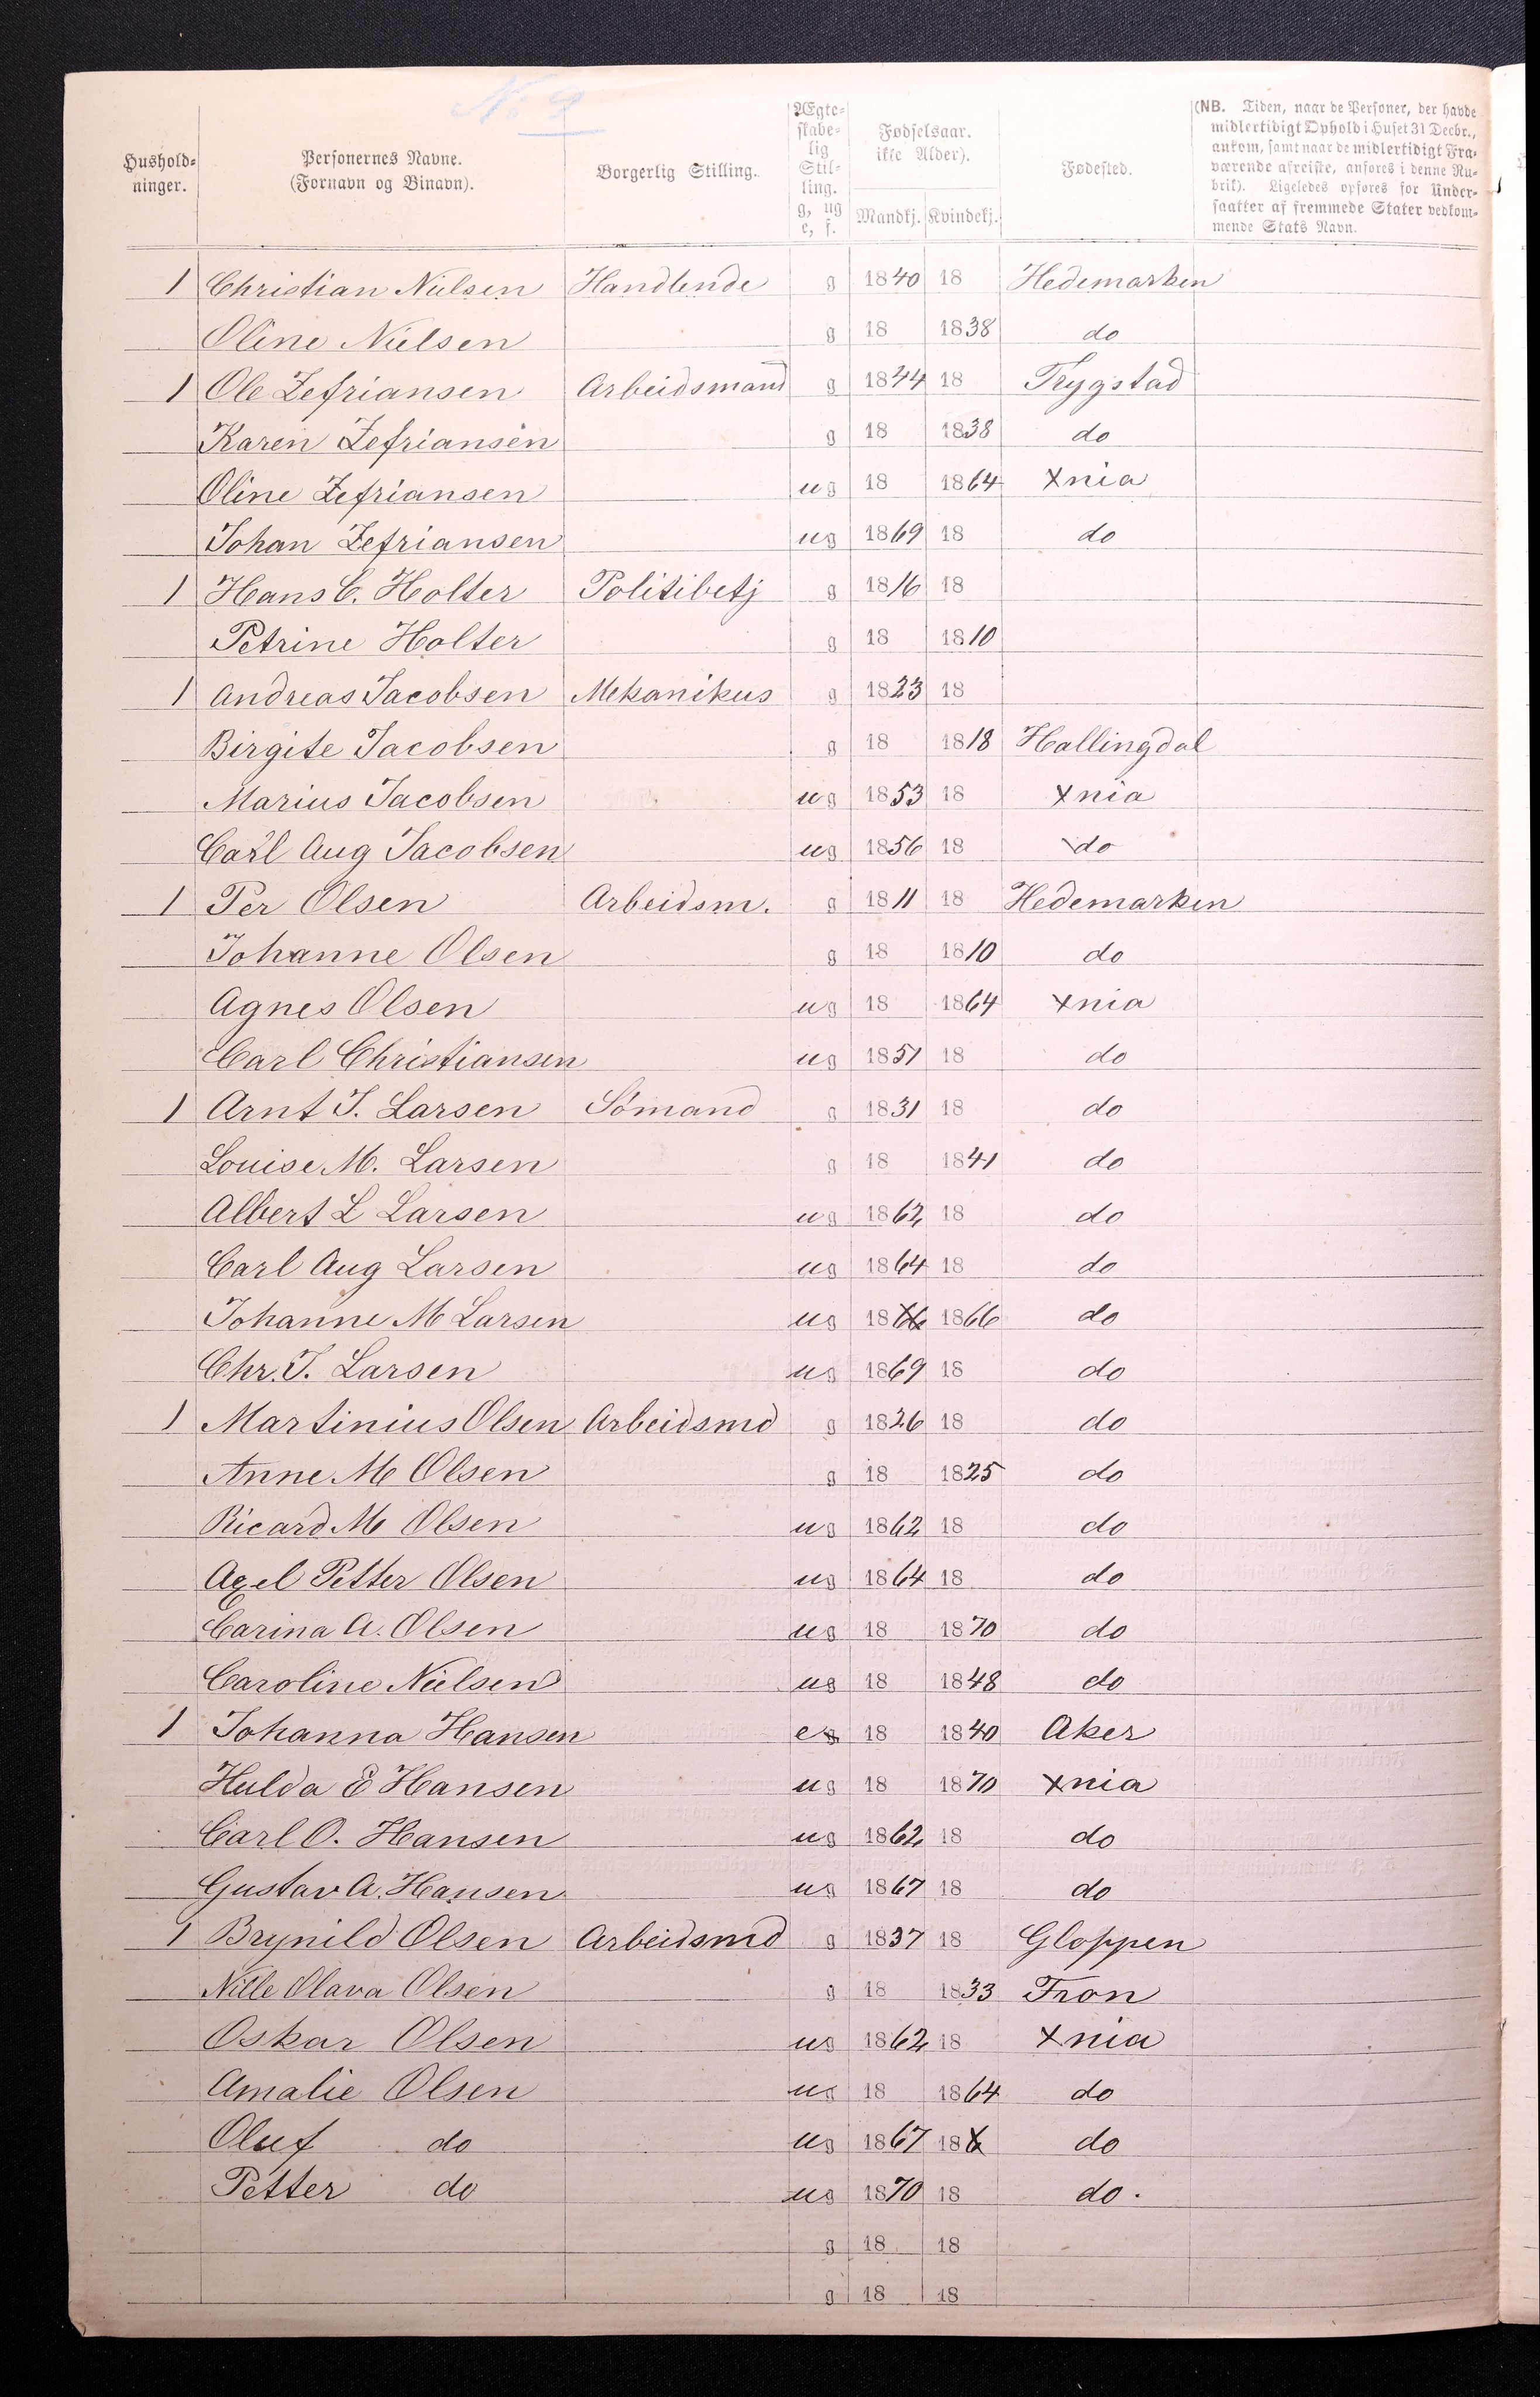 No 2
Hushold-
ninger.
Personernes Navne.
(Fornavn og Binavn).
Borgerlig Stilling.
Ægte-
skabe-
lig
Stil-
ling.
g, ug
e, f.
Fødselsaar.
ikke Alder).
Mandkj. Kvindekj.
Fødested.
(NB. Tiden, naar de Personer, der havde
midlertidigt Ophold i Huset 31 Decbr.,
ankom, samt naar de midlertidigt Fra-
værende afreiste, anføres i denne Ru-
brik). Ligeledes opføres for Under-
saatter af fremmede Stater vedkom-
mende Stats Navn.
1 Christian Nielsen Handlende g 1840 18 Hedemarken
Oline Nielsen g 18 1838 do
1 Ole Zefriansen Arbeidsmand g 1844 18 Trygstad
Karen Zefriansen g 18 1838 do
Oline Zefriansen ug 18 1864 Xnia
Johan Zefriansen ug 1869 18 do
1 Hans C. Holter Politibetj g 1816 18
Petrine Holter g 18 1810
1 Andreas Jacobsen Mekanikus g 1823 18
Birgite Jacobsen g 18 1818 Hallingdal
Marius Jacobsen ug 1853 18 Xnia
Carl Aug Jacobsen ug 1856 18 do
1 Per Olsen Arbeidsm. g 1811 18 Hedemarken
Johanne Olsen g 18 1810 do
Agnes Olsen ug 18 1864 Xnia
Carl Christiansen ug 1851 18 do
1 Arnt J. Larsen Sömand g 1831 18 do
Louise M. Larsen g 18 1841 do
Albert L Larsen ug 1862 18 do
Carl Aug Larsen ug 1864 18 do
Johanne M Larsen ug 1866 1866 do
Chr. J. Larsen ug 1869 18 do
1 Martinius Olsen Arbeidsmd g 1826 18 do
Anne M Olsen g 18 1825 do
Ricard M Olsen ug 1862 18 do
Axel Petter Olsen ug 1864 18 do
Carina A. Olsen ug 18 1870 do
Caroline Nielsen ug 18 1848 do
1 Johanna Hansen eg 18 1840 Aker
Hulda E Hansen ug 18 1870 Xnia
Carl O. Hansen ug 1862 18 do
Gustav A. Hansen ug 1867 18 do
1 Brynild Olsen Arbeidsmd g 1837 18 Gloppen
Nille Olava Olsen g 18 1833 Fron
Oskar Olsen ug 1862 18 Xnia
Amalie Olsen ug 18 1864 do
Oluf do ug 1867 186 do
Petter do ug 1870 18 do.
g 18 18
g 18 18